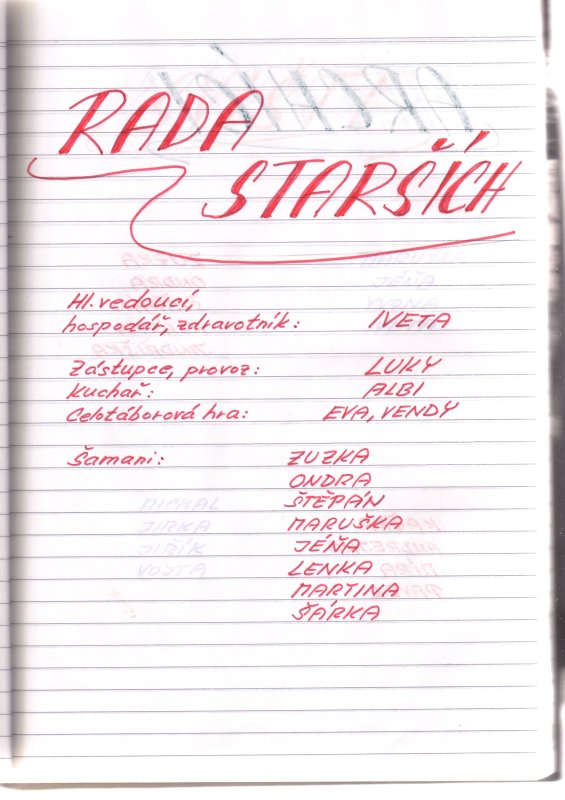 RADA
STARŠÍCH
Hl. vedoucí,
hospodář, zdravotník: IVETA
Zástupce, provoz: LUKY
Kuchař: ALBI
Celotáborová hra: EVA, VENDY
Šamani: ZUZKA
ONDRA
ŠTĚPÁN
MARUŠKA
JÉŇA
LENKA
MARTINA
ŠÁRKA